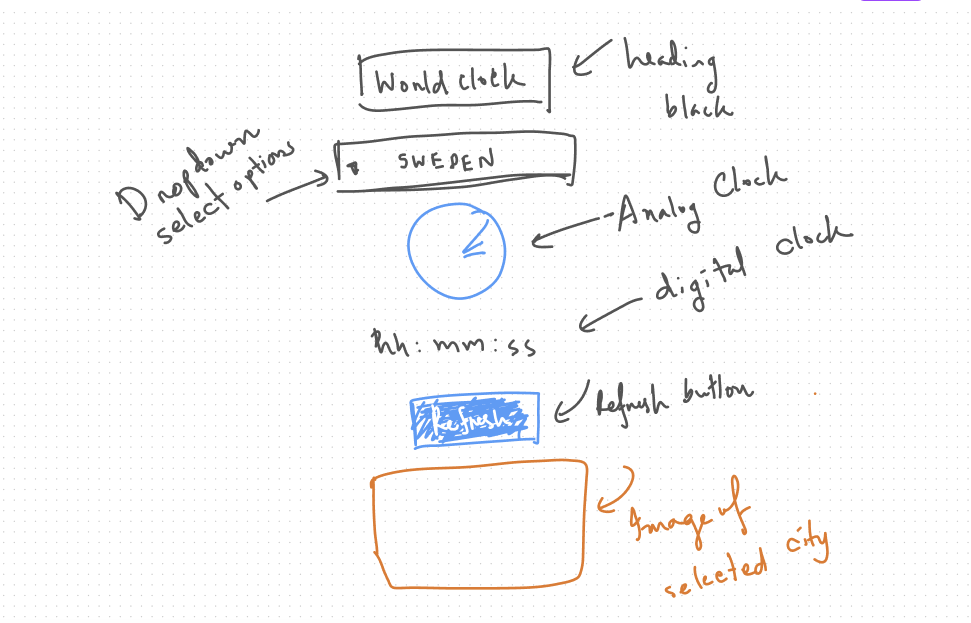 World clock
heading
black
Dropdown
select options
SWEDEN
Analog Clock
digital clock
hh : mm : ss
Refresh
Refresh button
Image of
selected city